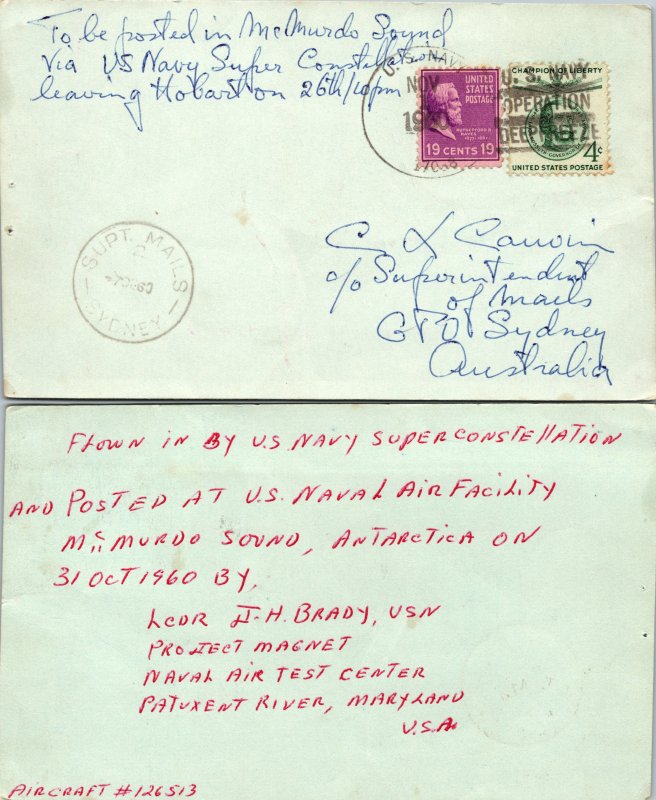 To be posted in McMurdo Sound
via US Navy Super Constellation
leaving Hobart on 26th/10pm
U.S. NAVY
NOV
1960
U.S. NAVY
OPERATION
DEEP FREEZE
UNITED
STATES
POSTAGE
RUTHERFORD B.
HAYES
19 CENTS 19
CHAMPION OF LIBERTY
4¢
UNITED STATES POSTAGE
SUPT. MAILS
60
SYDNEY
C L
c/o Superintendent
of Mails
GPO Sydney
Australia
FLOWN IN BY U.S. NAVY SUPERCONSTELLATION
AND POSTED AT U.S. NAVAL AIR FACILITY
McMURDO SOUND, ANTARCTICA ON
31 OCT 1960 BY,
LCDR H. BRADY, USN
PROJECT MAGNET
NAVAL AIR TEST CENTER
PATUXENT RIVER, MARYLAND
U.S.A.
AIRCRAFT #126513